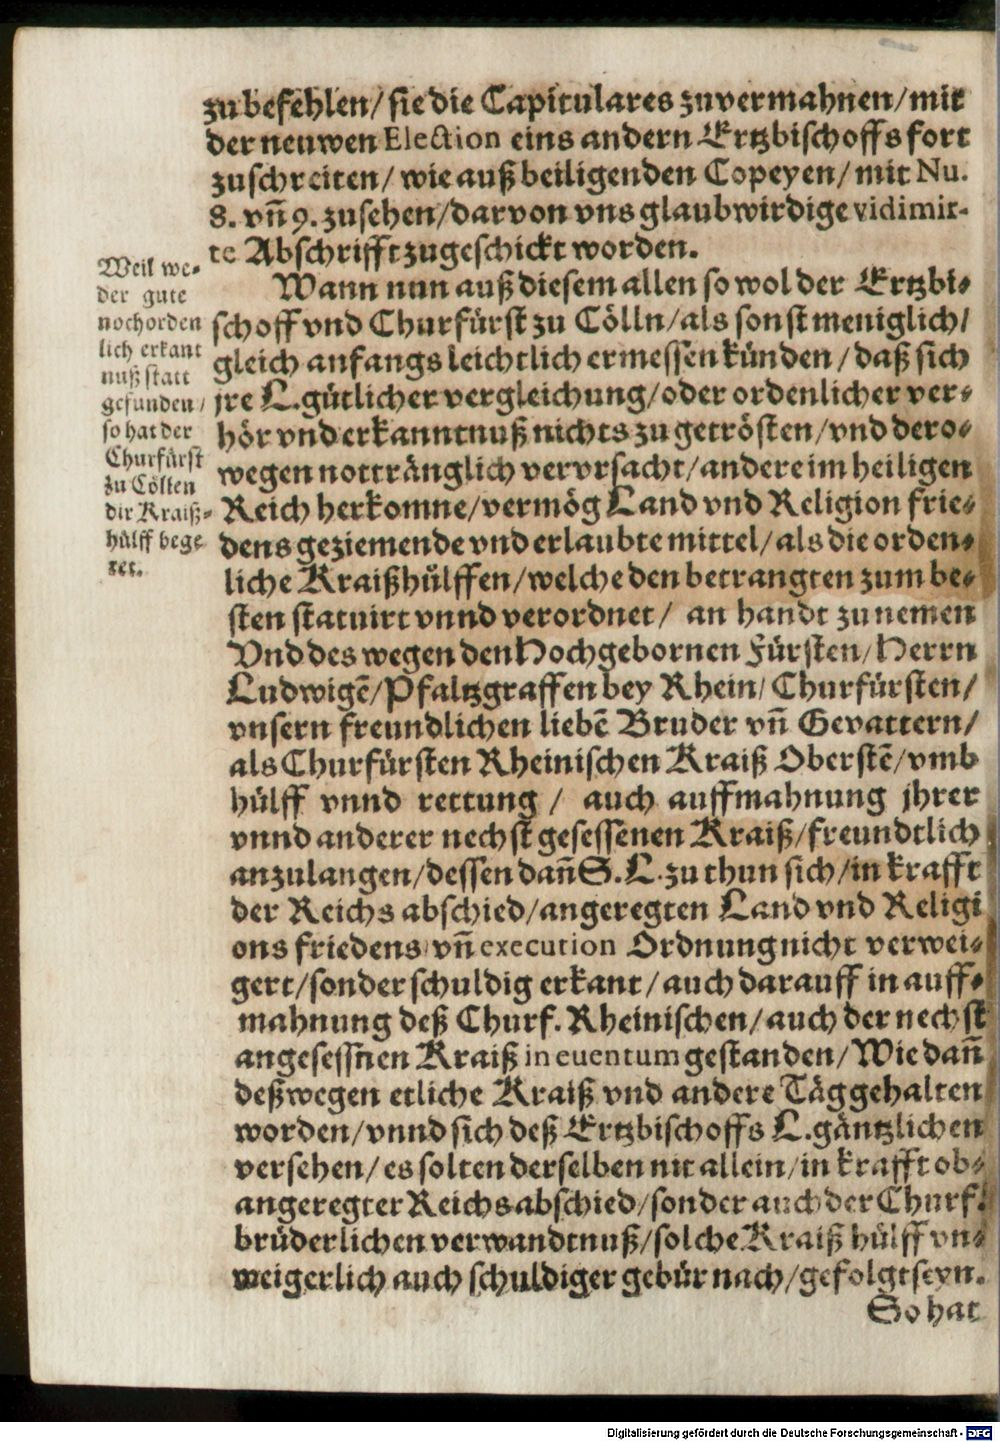 zubefehlen/ sie die Capitulares zuvermahnen/ mit
der neuwen Election eins andern Ertzbischoffs fort
zuschreiten/ wie auß beiligenden Copeyen/ mit Nu.
8. vñ 9. zusehen/ darvon vns glaubwirdige vidimir-
te Abschrifft zugeschickt worden.
Weil we-
der gute
noch orden
lich erkant
nuß statt
gefunden/
so hat der
Churfürst
zu Cöllen
dir Kraiß-
hülff bege
ret.
Wann nun auß diesem allen so wol der Ertzbi-
schoff vnd Churfürst zu Cölln/ als sonst meniglich/
gleich anfangs leichtlich ermessen künden/ daß sich
jre L. gütlicher vergleichung/ oder ordenlicher ver-
hör vnd erkanntnuß nichts zu getrösten/ vnd dero-
wegen nottränglich vervrsacht/ andere im heiligen
Reich herkomne/ vermög Land vnd Religion frie-
dens geziemende vnd erlaubte mittel/ als die orden-
liche Kraißhülffen/ welche den betrangten zum be-
sten statuirt vnnd verordnet/ an handt zu nemen
Vnd des wegen den Hochgebornen Fürsten/ Herrn
Ludwigẽ/ Pfaltzgraffen bey Rhein/ Churfürsten/
vnsern freundlichen liebẽ Bruder vñ Gevattern/
als Churfürsten Rheinischen Kraiß Oberstẽ/ vmb
hülff vnnd rettung/ auch auffmahnung jhrer
vnnd anderer nechst gesessenen Kraiß/ freundtlich
anzulangen/ dessen dañ S. L. zu thun sich/ in krafft
der Reichs abschied/ angeregten Land vnd Religi
ons friedens/ vñ execution Ordnung nicht verwei-
gert/ sonder schuldig erkant/ auch darauff in auff-
mahnung deß Churf. Rheinischen/ auch der nechst
angesessnen Kraiß in eventum gestanden/ Wie dañ
deßwegen etliche Kraiß vnd andere Täg gehalten
worden/ vnnd sich deß Ertzbischoffs L. gäntzlichen
versehen/ es solten derselben nit allein/ in krafft ob-
angeregter Reichsabschied/ sonder auch der Churf.
brüderlichen verwandtnuß/ solche Kraiß hülff vn-
weigerlich auch schuldiger gebür nach/ gefolgt seyn.
So hat
Digitalisierung gefördert durch die Deutsche Forschungsgemeinschaft - DFG